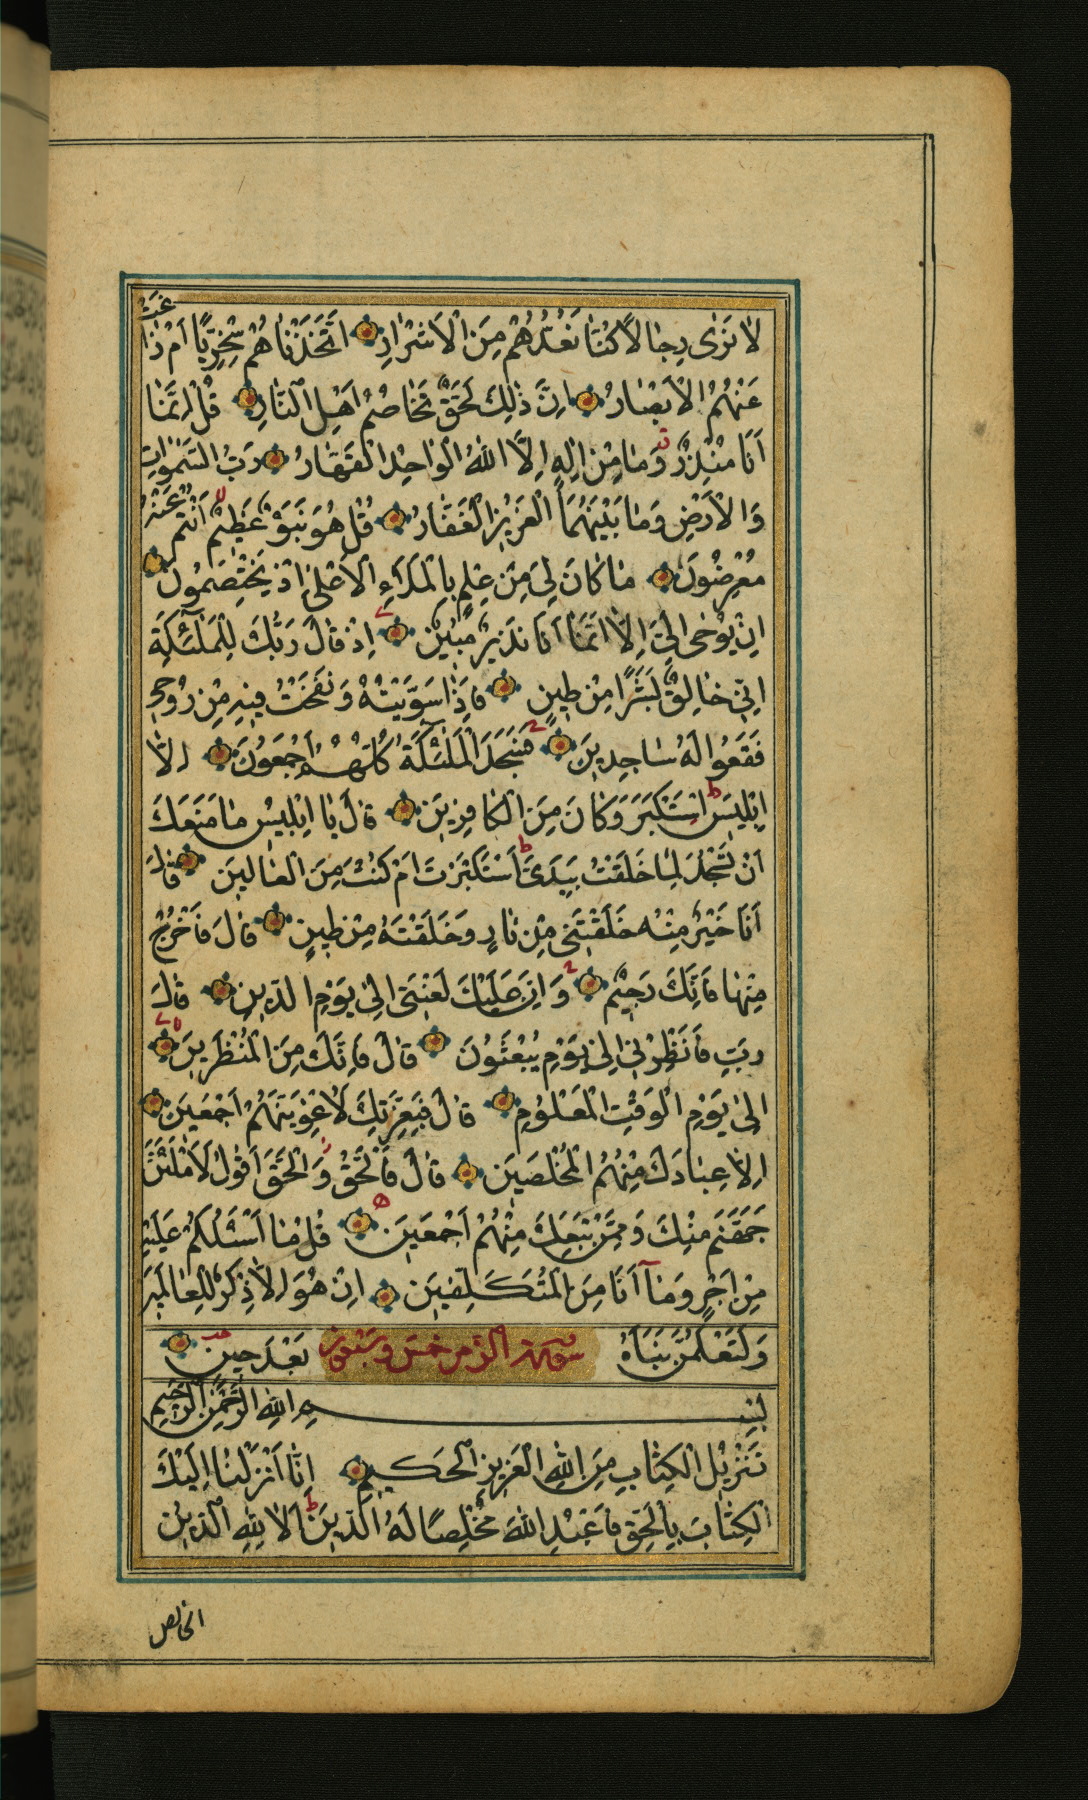 لَا نَرٰى رِجَالًا كُنَّا نَعُدُّهُمْ مِنَ الْاَشْرَارِ اَتَّخَذْنَاهُمْ سِخْرِيًّا اَمْ زَاغَتْ
عَنْهُمُ الْاَبْصَارُ اِنَّ ذٰلِكَ لَحَقٌّ تَخَاصُمُ اَهْلِ النَّارِ قُلْ اِنَّمَا
اَنَا مُنْذِرٌ وَمَا مِنْ اِلٰهٍ اِلَّا اللّٰهُ الْوَاحِدُ الْقَهَّارُ رَبُّ السَّمٰوَاتِ
وَالْاَرْضِ وَمَا بَيْنَهُمَا الْعَزِيزُ الْغَفَّارُ قُلْ هُوَ نَبَؤٌ عَظِيمٌ اَنْتُمْ عَنْهُ
مُعْرِضُونَ مَا كَانَ لِيَ مِنْ عِلْمٍ بِالْمَلَاِ الْاَعْلٰى اِذْ يَخْتَصِمُونَ
اِنْ يُوحٰى اِلَيَّ اِلَّا اَنَّمَا اَنَا نَذِيرٌ مُبِينٌ اِذْ قَالَ رَبُّكَ لِلْمَلٰٓئِكَةِ
اِنِّي خَالِقٌ بَشَرًا مِنْ طِينٍ فَاِذَا سَوَّيْتُهُ وَنَفَخْتُ فِيهِ مِنْ رُوحِي
فَقَعُوا لَهُ سَاجِدِينَ فَسَجَدَ الْمَلٰٓئِكَةُ كُلُّهُمْ اَجْمَعُونَ اِلَّا
اِبْلِيسَ اِسْتَكْبَرَ وَكَانَ مِنَ الْكَافِرِينَ قَالَ يَا اِبْلِيسُ مَا مَنَعَكَ
اَنْ تَسْجُدَ لِمَا خَلَقْتُ بِيَدَيَّ اَسْتَكْبَرْتَ اَمْ كُنْتَ مِنَ الْعَالِينَ قَالَ
اَنَا خَيْرٌ مِنْهُ خَلَقْتَنِي مِنْ نَارٍ وَخَلَقْتَهُ مِنْ طِينٍ قَالَ فَاخْرُجْ
مِنْهَا فَاِنَّكَ رَجِيمٌ وَاِنَّ عَلَيْكَ لَعْنَتِي اِلٰى يَوْمِ الدِّينِ قَالَ
رَبِّ فَاَنْظِرْنِي اِلٰى يَوْمِ يُبْعَثُونَ قَالَ فَاِنَّكَ مِنَ الْمُنْظَرِينَ
اِلٰى يَوْمِ الْوَقْتِ الْمَعْلُومِ قَالَ فَبِعِزَّتِكَ لَاُغْوِيَنَّهُمْ اَجْمَعِينَ
اِلَّا عِبَادَكَ مِنْهُمُ الْمُخْلَصِينَ قَالَ فَالْحَقُّ وَالْحَقَّ اَقُولُ لَاَمْلَئَنَّ
جَهَنَّمَ مِنْكَ وَمِمَّنْ تَبِعَكَ مِنْهُمْ اَجْمَعِينَ قُلْ مَا اَسْئَلُكُمْ عَلَيْهِ
مِنْ اَجْرٍ وَمَا اَنَا مِنَ الْمُتَكَلِّفِينَ اِنْ هُوَ اِلَّا ذِكْرٌ لِلْعَالَمِينَ
وَلَتَعْلَمُنَّ نَبَاَهُ سورة الزمر خمس وسبعون بَعْدَ حِينٍ
بِسْمِ اللّٰهِ الرَّحْمٰنِ الرَّحِيمِ
تَنْزِيلُ الْكِتَابِ مِنَ اللّٰهِ الْعَزِيزِ الْحَكِيمِ اِنَّا اَنْزَلْنَا اِلَيْكَ
الْكِتَابَ بِالْحَقِّ فَاعْبُدِ اللّٰهَ مُخْلِصًا لَهُ الدِّينَ اَلَا لِلّٰهِ الدِّينُ
الخالص